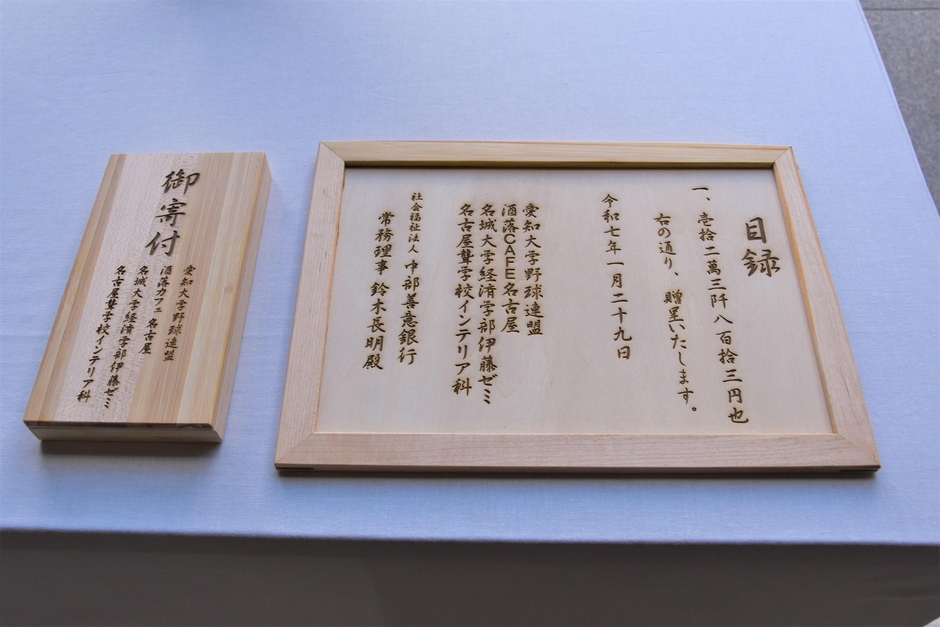 御寄付
愛知大学野球連盟
洒落カフェ名古屋
名城大学経済学部伊藤ゼミ
名古屋聾学校インテリア科
目録
一、壱拾二萬三阡八百拾三円也
右の通り、贈呈いたします。
令和七年一月二十九日
愛知大学野球連盟
洒落CAFE名古屋
名城大学経済学部伊藤ゼミ
名古屋聾学校インテリア科
社会福祉法人 中部善意銀行
常務理事 鈴木長明殿